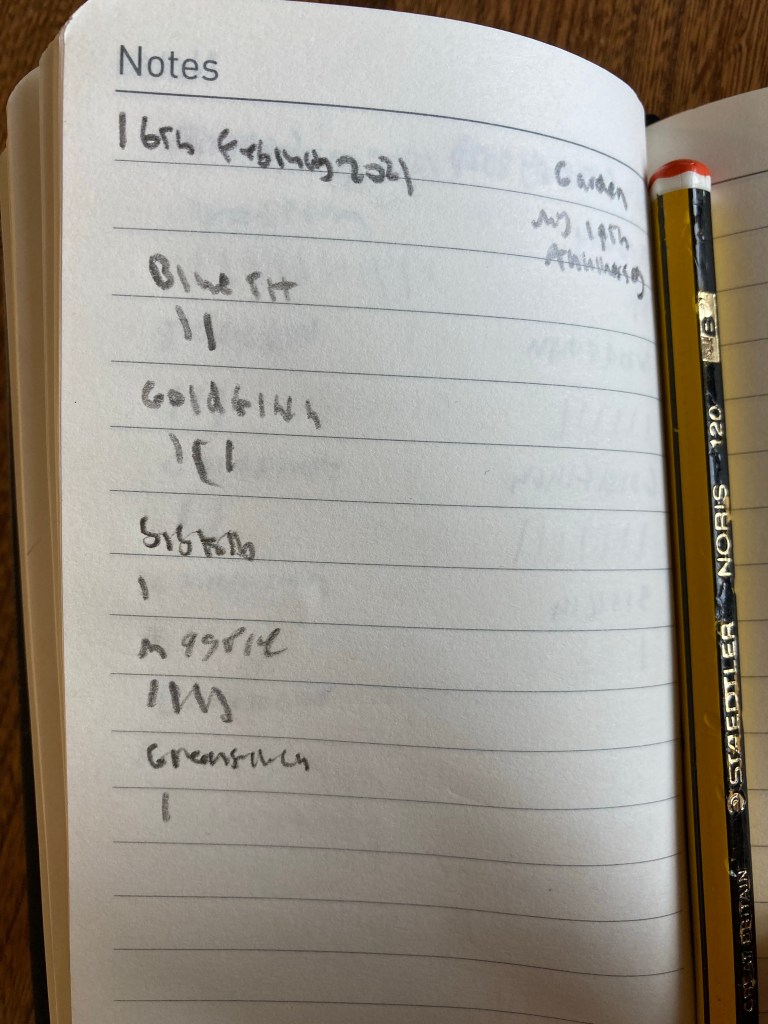 Notes
16th February 2021
Garden
my 19th
Anniversary
Blue tit
II
Goldfinch
III
Siskin
I
magpie
Greenfinch
I
STAEDTLER NORIS 120 B
BRITAIN